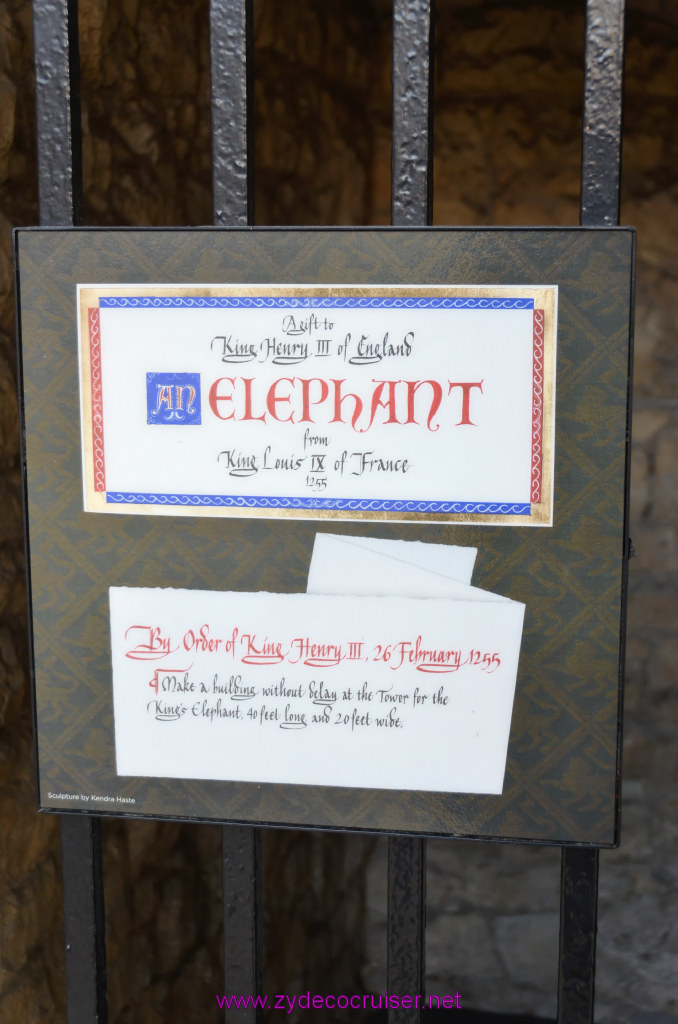 A gift to
King Henry III of England
AN ELEPHANT
from
King Louis IX of France
1255
By Order of King Henry III, 26 February 1255
¶ Make a building without delay at the Tower for the
King's Elephant, 40 feet long and 20 feet wide.
Sculpture by Kendra Haste
www.zydecocruiser.net